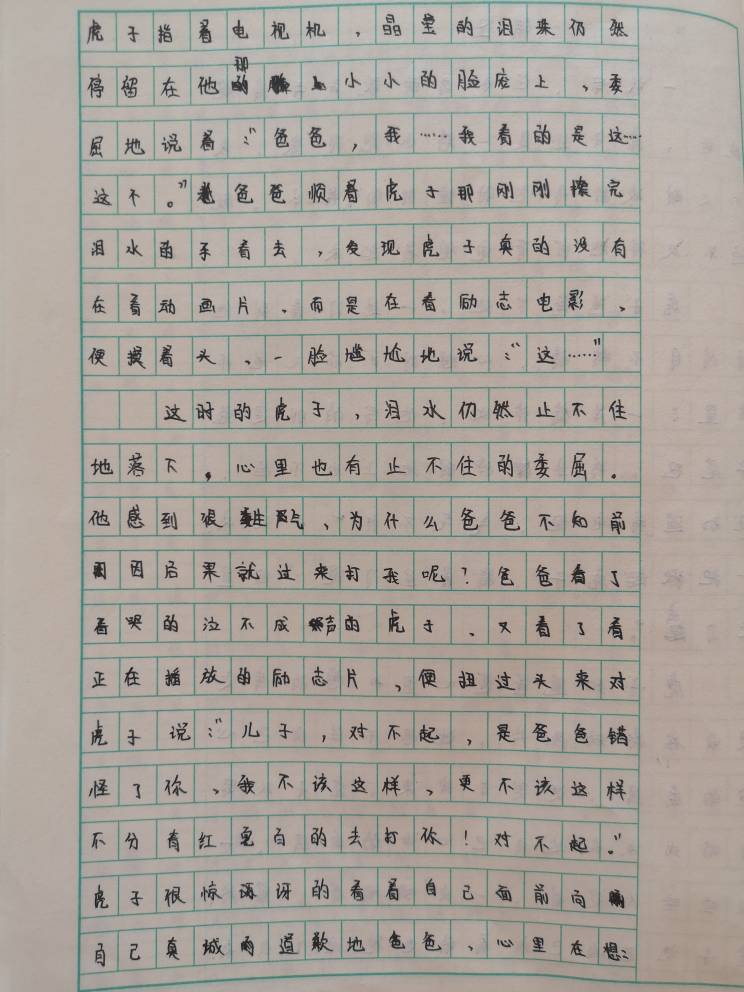 虎子指着电视机，晶莹的泪珠仍然
停留在他那小小的脸庞上，委
屈地说着："爸爸，我……我看的是这……
这不。"爸爸顺着虎子那刚刚擦完
泪水的手看去，发现虎子真的没有
在看动画片，而是在看励志电影，
便摸着头，一脸尴尬地说："这……"
这时的虎子，泪水仍然止不住
地落下，心里也有止不住的委屈。
他感到很生气，为什么爸爸不知前
因后果就过来打我呢？爸爸看了
看哭的泣不成声的虎子，又看了看
正在播放的励志片，便扭过头来对
虎子说："儿子，对不起，是爸爸错
怪了你，我不该这样，更不该这样
不分青红皂白的去打你！对不起。"
虎子很惊讶的看着自己面前向
自己真诚道歉地爸爸，心里在想：